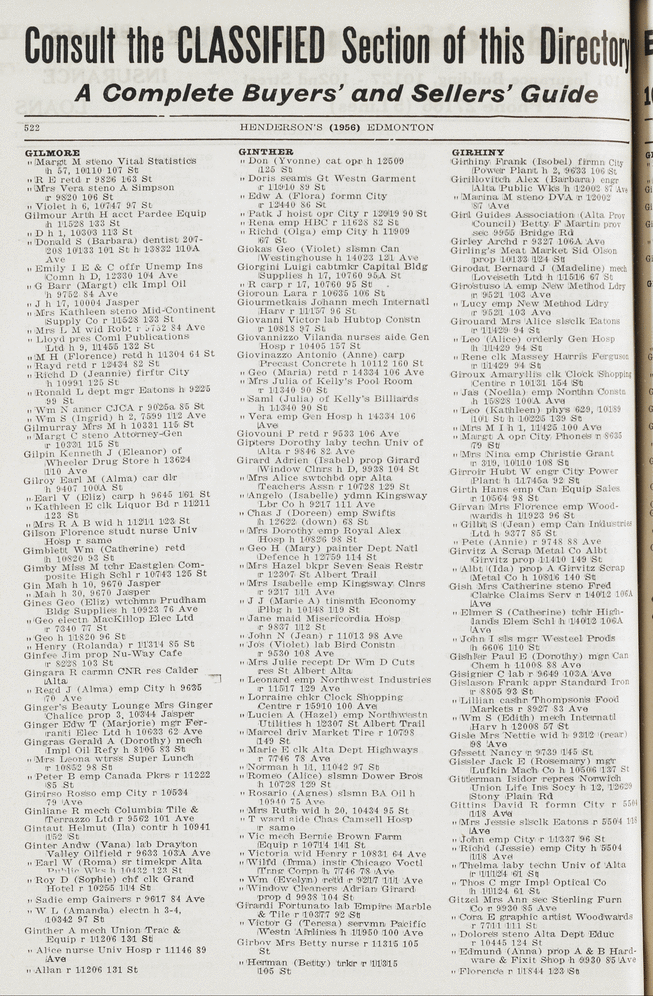 Consult the CLASSIFIED Section of this Directory
A Complete Buyers' and Sellers' Guide
522 HENDERSON'S (1956) EDMONTON
GILMORE
" Margt M steno Vital Statistics
h 57, 10110 107 St
" R E retd r 9826 163 St
" Mrs Vera steno A Simpson
r 9820 106 St
" Violet h 6, 10747 97 St
Gilmour Arth H acct Pardee Equip
h 11528 133 St
" D h 1, 10303 113 St
" Donald S (Barbara) dentist 207-
208 10133 101 St h 13832 110A
Ave
" Emily I E & C offr Unemp Ins
Comn h D, 12330 104 Ave
" G Barr (Margt) clk Impl Oil
h 9752 84 Ave
" J h 17, 10004 Jasper
" Mrs Kathleen steno Mid-Continent
Supply Co r 11528 133 St
" Mrs L M wid Robt r 9752 84 Ave
" Lloyd pres Coml Publications
Ltd h 9, 11455 132 St
" M H (Florence) retd h 11304 64 St
" Rayd retd r 12434 82 St
" Richd D (Jeannie) firftr City
h 10991 125 St
" Ronald L dept mgr Eatons h 9225
99 St
" Wm N anner CJCA r 9025a 85 St
" Wm S (Ingrid) h 2, 7599 112 Ave
Gilmurray Mrs M h 10331 115 St
" Margt C steno Attorney-Gen
r 10331 115 St
Gilpin Kenneth J (Eleanor) of
Wheeler Drug Store h 13624
110 Ave
Gilroy Earl M (Alma) car dlr
h 9407 100A St
" Earl V (Eliz) carp h 9645 161 St
" Kathleen E clk Liquor Bd r 11211
123 St
" Mrs R A B wid h 11211 123 St
Gilson Florence studt nurse Univ
Hosp r same
Gimblett Wm (Catherine) retd
h 10820 93 St
Gimby Miss M tchr Eastglen Com-
posite High Schl r 10743 125 St
Gin Mah h 10, 9670 Jasper
" Mah h 30, 9670 Jasper
Gines Geo (Eliz) wtchmn Prudham
Bldg Supplies h 10923 76 Ave
" Geo electn MacKillop Elec Ltd
r 7340 77 St
" Geo h 11820 96 St
" Henry (Rolanda) r 11314 85 St
Ginfee Jim prop Nu-Way Cafe
r 8228 103 St
Gingara R carmn CNR res Calder
Alta
" Regd J (Alma) emp City h 9635
70 Ave
Ginger's Beauty Lounge Mrs Ginger
Chalice prop 3, 10344 Jasper
Ginger Edw T (Marjorie) mgr Fer-
ranti Elec Ltd h 10633 62 Ave
Gingras Gerald A (Dorothy) mech
Impl Oil Refy h 8105 83 St
" Mrs Leona wtrss Super Lunch
r 10852 98 St
" Peter B emp Canada Pkrs r 11222
85 St
Ginirso Rosso emp City r 10534
79 Ave
Ginliane R mech Columbia Tile &
Terrazzo Ltd r 9562 101 Ave
Gintaut Helmut (Ila) contr h 10941
152 St
Ginter Andw (Vana) lab Drayton
Valley Oilfield r 9633 103A Ave
" Earl W (Roma) sr timekpr Alta
Public Wks h 10432 123 St
" Roy D (Sophie) chf clk Grand
Hotel r 10255 114 St
" Sadie emp Gainers r 9617 84 Ave
" W L (Amanda) electn h 3-4,
10342 97 St
Ginther A mech Union Trac &
Equip r 11206 131 St
" Alice nurse Univ Hosp r 11146 89
Ave
" Allan r 11206 131 St
GINTHER
" Don (Yvonne) cat opr h 12509
125 St
" Doris seams Gt Westn Garment
r 11910 89 St
" Edw A (Flora) formn City
r 12440 86 St
" Patk J hoist opr City r 12919 90 St
" Rena emp HBC r 11628 82 St
" Richd (Olga) emp City h 11909
67 St
Giokas Geo (Violet) slsmn Can
Westinghouse h 14023 121 Ave
Giorgini Luigi cabtmkr Capital Bldg
Supplies h 17, 10760 95A St
" R carp r 17, 10760 95 St
Gioroun Lara r 10635 106 St
Giourmetkais Johann mech Internatl
Harv r 11157 96 St
Giovanni Victor lab Hubtop Constn
r 10818 97 St
Giovannizzo Vilanda nurses aide Gen
Hosp r 10405 157 St
Giovinazzo Antonio (Anne) carp
Precast Concrete h 10112 160 St
" Geo (Maria) retd r 14334 106 Ave
" Mrs Julia of Kelly's Pool Room
r 11340 90 St
" Saml (Julia) of Kelly's Billiards
h 11340 90 St
" Vera emp Gen Hosp h 14334 106
Ave
Giovouni P retd r 9533 106 Ave
Gipters Dorothy laby techn Univ of
Alta r 9846 82 Ave
Girard Adrien (Isabel) prop Girard
Window Clnrs h D, 9938 104 St
" Mrs Alice swtchbd opr Alta
Teachers Assn r 10728 129 St
" Angelo (Isabelle) ydmn Kingsway
Lbr Co h 9217 111 Ave
" Chas J (Doreen) emp Swifts
h 12622 (down) 68 St
" Mrs Dorothy emp Royal Alex
Hosp h 10826 98 St
" Geo H (Mary) painter Dept Natl
Defence h 12759 114 St
" Mrs Hazel bkpr Seven Seas Restr
r 12307 St Albert Trail
" Mrs Isabelle emp Kingsway Clnrs
r 9217 111 Ave
" J J (Marie A) tinsmth Economy
Plbg h 10148 119 St
" Jane maid Misericordia Hosp
r 9837 112 St
" John N (Jean) r 11013 98 Ave
" Jos (Violet) lab Bird Constn
r 9530 108 Ave
" Mrs Julie recept Dr Wm D Cuts
res St Albert Alta
" Leonard emp Northwest Industries
r 11517 129 Ave
" Lorraine chkr Clock Shopping
Centre r 15910 100 Ave
" Lucien A (Hazel) emp Northwestn
Utilities h 12307 St Albert Trail
" Marcel driv Market Tire r 10798
149 St
" Marie E clk Alta Dept Highways
r 7746 78 Ave
" Norman h 11, 11042 97 St
" Romeo (Alice) slsmn Dower Bros
h 10728 129 St
" Rosario (Agnes) slsmn BA Oil h
10940 75 Ave
" Mrs Ruth wid h 20, 10434 95 St
" T ward aide Chas Camsell Hosp
r same
" Vic mech Bernie Brown Farm
Equip r 10714 141 St
" Victoria wid Henry r 10831 64 Ave
" Wilfd (Orma) instr Chicago Voctl
Trng Corpn h 7746 78 Ave
" Wm (Evelyn) retd r 9217 111 Ave
" Window Cleaners Adrian Girard
prop d 9938 104 St
Girardi Fortunato lab Empire Marble
& Tile r 10377 92 St
" Victor G (Teresa) servmn Pacific
Westn Airlines h 11950 100 Ave
Girbov Mrs Betty nurse r 11315 105
St
" Herman (Betty) trkr r 11315
105 St
GIRHINY
Girhiny Frank (Isobel) firmn City
Power Plant h 2, 9633 106 St
Girillovitch Alex (Barbara) engr
Alta Public Wks h 12002 87 Ave
" Marina M steno DVA r 12002
87 Ave
Girl Guides Association (Alta Prov
Council) Betty F Martin prov
sec 9955 Bridge Rd
Girley Archd r 9327 106A Ave
Girling's Meat Market Sid Olson
prop 10133 124 St
Girodat Bernard J (Madeline) mech
Loveseth Ltd h 11516 67 St
Girostuso A emp New Method Ldry
r 9521 103 Ave
" Lucy emp New Method Ldry
r 9521 103 Ave
Girouard Mrs Alice slsclk Eatons
r 11429 94 St
" Leo (Alice) orderly Gen Hosp
h 11429 94 St
" Rene clk Massey Harris Ferguson
r 11429 94 St
Giroux Amaryllis clk Clock Shopping
Centre r 10131 154 St
" Jas (Noella) emp Northn Consta
h 15828 100A Ave
" Leo (Kathleen) phys 629, 10189
101 St h 10225 139 St
" Mrs M I h 1, 11425 100 Ave
" Margt A opr City Phones r 8635
79 St
" Mrs Nina emp Christie Grant
r 319, 10110 108 St
Girroir Hubt W engr City Power
Plant h 11745a 92 St
Girth Hans emp Can Equip Sales
r 10564 98 St
Girvan Mrs Florence emp Wood-
wards h 11923 96 St
" Gilbt S (Jean) emp Can Industries
Ltd h 9377 85 St
" Pete (Annie) r 9748 88 Ave
Girvitz A Scrap Metal Co Albt
Girvitz prop 11410 149 St
" Albt (Ida) prop A Girvitz Scrap
Metal Co h 10816 140 St
Gish Mrs Catherine steno Fred
Clarke Claims Serv r 14012 106A
Ave
" Elmer S (Catherine) tchr High-
lands Elem Schl h 14012 106A
Ave
" John I sls mgr Westeel Prods
h 6606 110 St
Gishler Paul E (Dorothy) mgr Can
Chem h 11008 88 Ave
Gisignier C lab r 9649 103A Ave
Gislason Frank appr Standard Iron
r 8805 93 St
" Lillian cashr Thompson's Food
Markets r 8927 83 Ave
" Wm S (Edith) mech Internatl
Harv h 12008 57 St
Gisle Mrs Nettie wid h 9312 (rear)
98 Ave
Gissett Nancy r 9739 145 St
Gissler Jack E (Rosemary) mgr
Lufkin Mach Co h 10506 137 St
Gitterman Isidor repres Norwich
Union Life Ins Socy h 12, 12629
Stony Plain Rd
Gittins David R formn City r 5504
118 Ave
" Mrs Jessie slsclk Eatons r 5504 118
Ave
" John emp City r 11337 96 St
" Richd (Jessie) emp City h 5504
118 Ave
" Thelma laby techn Univ of Alta
r 11124 61 St
" Thos C mgr Impl Optical Co
h 11124 61 St
Gitzel Mrs Ann sec Sterling Furn
Co r 9930 85 Ave
" Cora E graphic artist Woodwards
r 7711 111 St
" Dolores steno Alta Dept Educ
r 10445 124 St
" Edmund (Anna) prop A & B Hard-
ware & Fixit Shop h 9930 85 Ave
" Florence r 11844 123 St